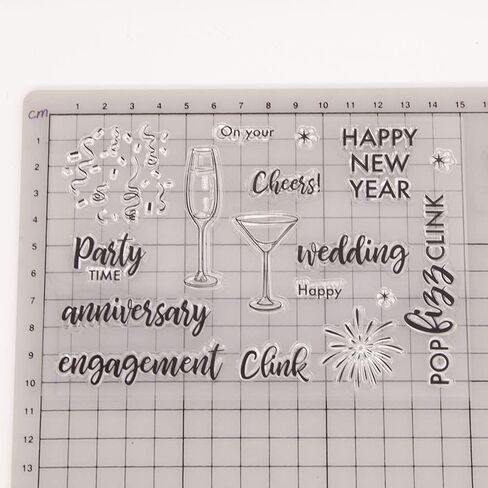 cm
1 2 3 4 5 6 7 8 9 10 11 12 13 14 15
1
2
3
4
5
6
7
8
9
10
11
12
13
On your
HAPPY
NEW
YEAR
Cheers!
Party
TIME
wedding
Happy
anniversary
engagement
Clink
POP fizz CLINK